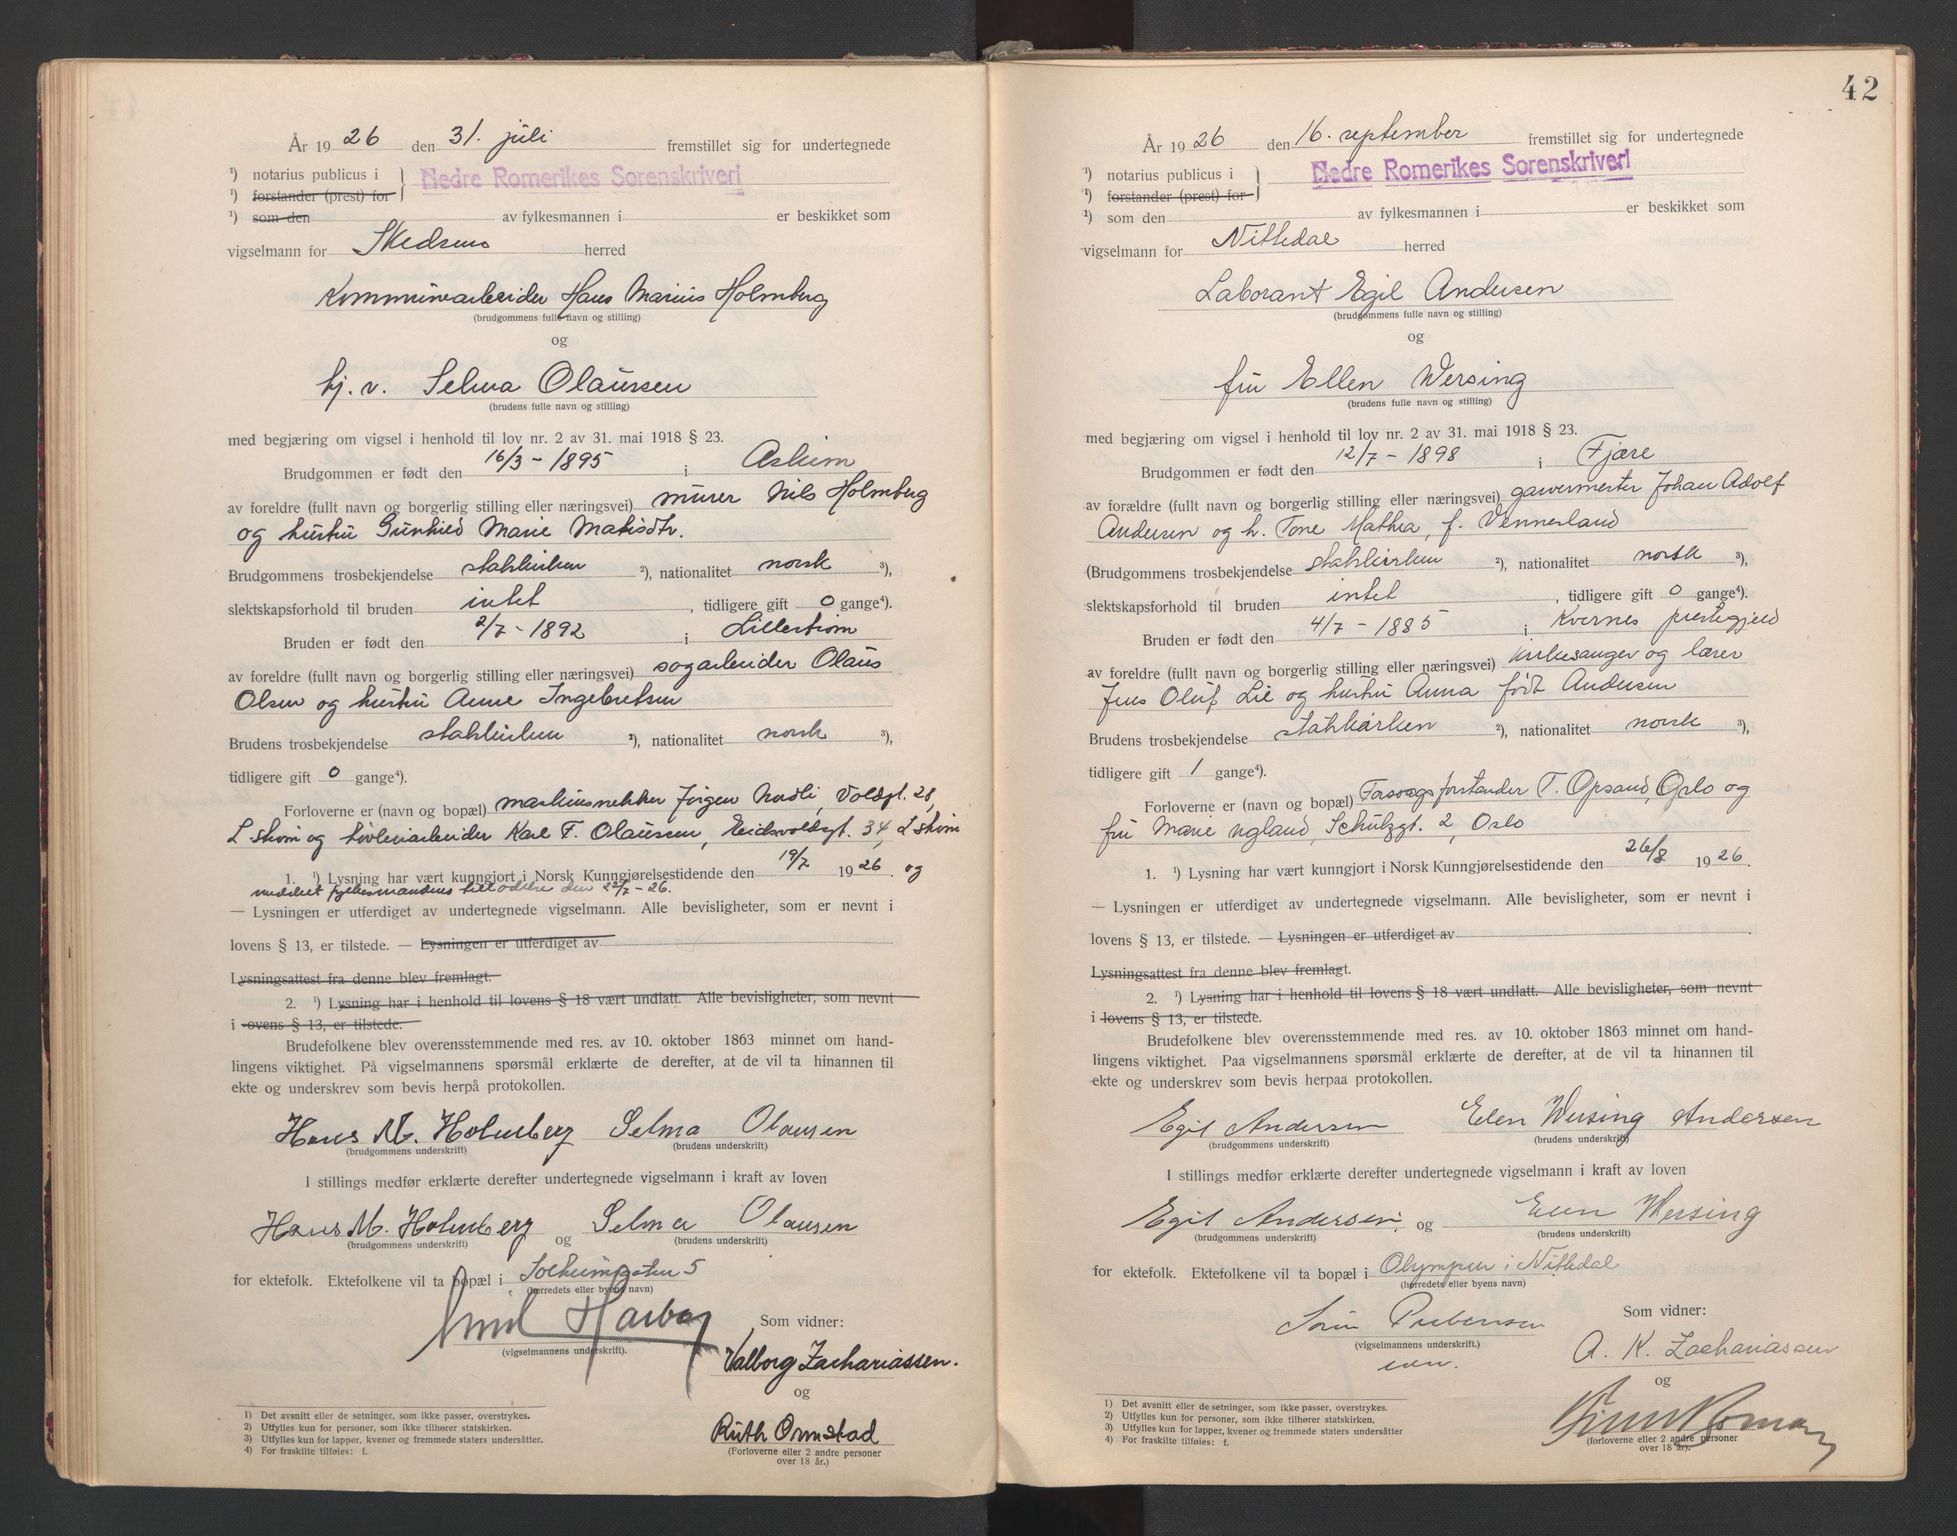 År 1926 den 31. juli fremstillet sig for undertegnede
¹) notarius publicus i } Nedre Romerikes Sorenskriveri
¹) forstander (prest) for
¹) som den av fylkesmannen i er beskikket som
vigselmann for Skedsmo herred
Kommunearbeider Hans Marius Holmberg
(brudgommens fulle navn og stilling)
og
hj. v. Selma Olaussen
(brudens fulle navn og stilling)
med begjæring om vigsel i henhold til lov nr. 2 av 31. mai 1918 § 23.
Brudgommen er født den 16/3 - 1895 i Askim
av foreldre (fullt navn og borgerlig stilling eller næringsvei) murer Nils Holmberg
og hustru Gunhild Marie Matisdtr.
Brudgommens trosbekjendelse statskirken ²), nationalitet norsk ³),
slektskapsforhold til bruden intet, tidligere gift 0 gange⁴).
Bruden er født den 2/7 - 1892 i Lillestrøm
av foreldre (fullt navn og borgerlig stilling eller næringsvei) sagarbeider Olaus
Olsen og hustru Anne Ingebretsen
Brudens trosbekjendelse statskirken ²), nationalitet norsk ³),
tidligere gift 0 gange⁴).
Forloverne er (navn og bopæl) maskinsnekker Jørgen Nordli, Voldgt. 28,
L strøm og høvleriarbeider Karl F. Olaussen, Eidsvoldsgt. 34, L strøm
1. ¹) Lysning har vært kunngjort i Norsk Kunngjørelsestidende den 19/7 1926. og
meddelt fylkesmandens tilladelse den 22/7 - 26.
— Lysningen er utferdiget av undertegnede vigselmann. Alle bevisligheter, som er nevnt i
lovens § 13, er tilstede. — Lysningen er utferdiget av
Lysningsattest fra denne blev fremlagt.
2. ¹) Lysning har i henhold til lovens § 18 vært undlatt. Alle bevisligheter, som nevnt
i lovens § 13, er tilstede.
Brudefolkene blev overensstemmende med res. av 10. oktober 1863 minnet om hand-
lingens viktighet. På vigselmannens spørsmål erklærte de derefter, at de vil ta hinannen til
ekte og underskrev som bevis herpå protokollen.
Hans M. Holmberg Selma Olausen
(brudgommens underskrift) (brudens underskrift)
I stillings medfør erklærte derefter undertegnede vigselmann i kraft av loven
Hans M. Holmberg og Selma Olausen
(brudgommens underskrift) (brudens underskrift)
for ektefolk. Ektefolkene vil ta bopæl i Solheimsgaten 5
(herredets eller byens navn)
Emil
(vigselmannens underskrift).
Som vidner:
Valborg Zachariassen.
og
Ruth Ormstad
(Forloverne eller 2 andre personer
over 18 år.)
1) Det avsnitt eller de setninger, som ikke passer, overstrykes.
2) Utfylles kun for personer, som ikke tilhører statskirken.
3) Utfylles kun for lapper, kvener og fremmede staters undersåtter.
4) For fraskilte tilføies: f.
42
År 1926 den 16. september fremstillet sig for undertegnede
¹) notarius publicus i } Nedre Romerikes Sorenskriveri
¹) forstander (prest) for
¹) som den av fylkesmannen i er beskikket som
vigselmann for Nittedal herred
Laborant Egil Andersen
(brudgommens fulle navn og stilling)
og
fru Ellen Wersing
(brudens fulle navn og stilling)
med begjæring om vigsel i henhold til lov nr. 2 av 31. mai 1918 § 23.
Brudgommen er født den 12/7 - 1898 i Fjære
av forældre (fullt navn og borgerlig stilling eller næringsvei) garvermester Johan Adolf
Andersen og h. Tone Mathea, f. Vennesland
(Brudgommens trosbekjendelse statskirken ²), nationalitet norsk ³),
slektskapsforhold til bruden intet, tidligere gift 0 gange⁴).
Bruden er født den 4/7 - 1885 i Kvernes prestegjeld
av foreldre (fullt navn og borgerlig stilling eller næringsvei) kirkesanger og lærer
Jens Oluf Lie og hustru Anna født Andersen
Brudens trosbekjendelse statskirken ²), nationalitet norsk ³),
tidligere gift 1 gange⁴).
Forloverne er (navn og bopæl) Forsøgsforstander T. Opsand, Oslo og
fru Marie Ugland, Schulzgt. 2, Oslo
1. ¹) Lysning har vært kunngjort i Norsk Kunngjørelsestidende den 26/8 1926.
— Lysningen er utferdiget av undertegnede vigselmann. Alle bevisligheter, som er nevnt i
lovens § 13, er tilstede. — Lysningen er utferdiget av
Lysningsattest fra denne blev fremlagt.
2. ¹) Lysning har i henhold til lovens § 18 vært undlatt. Alle bevisligheter, som nevnt
i lovens § 13, er tilstede.
Brudefolkene blev overensstemmende med res. av 10. oktober 1863 minnet om hand-
lingens viktighet. Paa vigselmannens spørsmål erklærte de derefter, at de vil ta hinannen til
ekte og underskrev som bevis herpaa protokollen.
Egil Andersen Ellen Wersing Andersen
(brudgommens underskrift) (brudens underskrift)
I stillings medfør erklærte derefter undertegnede vigselmann i kraft av loven
Egil Andersen og Ellen Wersing
(brudgommens underskrift) (brudens underskrift)
for ektefolk. Ektefolkene vil ta bopæl i Olympen i Nittedal
(herredets eller byens navn)
(vigselmannens underskrift.)
Som vidner:
A. K. Zachariassen
og
(forloverne eller 2 andre personer
over 18 år).
1) Det avsnitt eller de setninger, som ikke passer, overstrykes.
2) Utfylles kun for personer, som ikke tilhører statskirken.
3) Utfylles kun for lapper, kvener og fremmede staters undersåtter
4) For fraskilte tilføies: f.